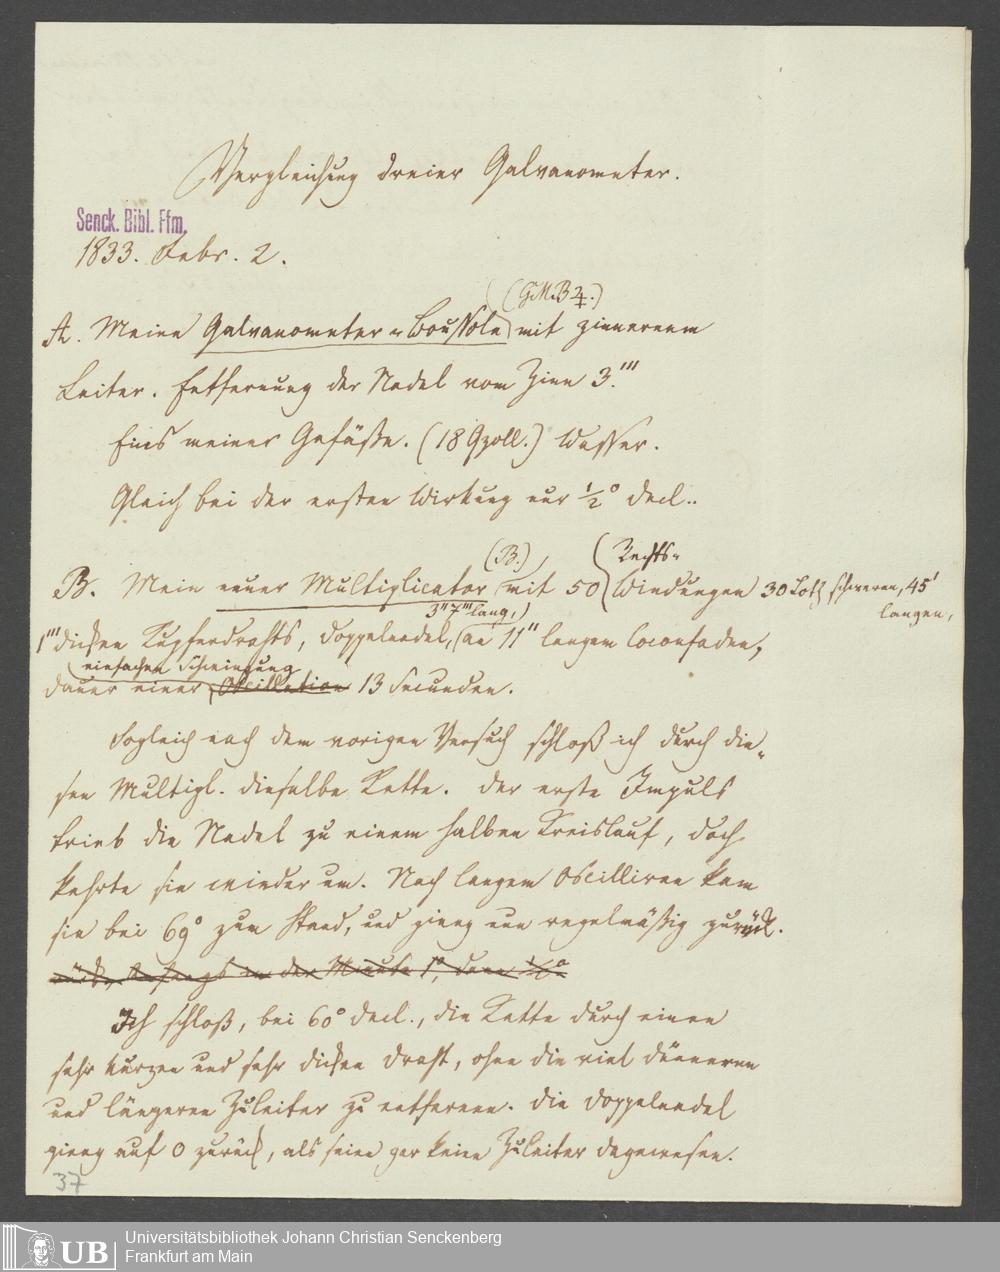 Vergleichung dreier Galvanometer.
Senck. Bibl. Ffm.
1833. Febr. 2.
(G.M.B ♃.)
A. Meine Galvanometer-Boussole mit zinnernem
Leiter. Entfernung der Nadel vom Zinn 3.'''
Eins meiner Gefäße. (18 Qzoll.) Wasser.
Gleich bei der ersten Wirkung nur ½° Decl..
(B.) Rechts-
B. Mein neuer Multiplicator mit 50 Windungen 30 Loth schweren, 45'
langen,
3"7''' lang,
1''' dicken Kupferdrahts, Doppelnadel, an 11" langem Coconfaden,
einfachen Schwingung
Dauer einer Oscillation 13 Secunden.
Sogleich nach dem vorigen Versuch schloß ich durch die-
sen Multipl. dieselbe Kette. Der erste Impuls
trieb die Nadel zu einem halben Kreislauf, doch
kehrte sie wieder um. Nach langem Oscilliren kam
sie bei 69° zum Stand, und gieng nun regelmäßig zurück.
Anfangs in der Minute 1°, dann ½°
Ich schloß, bei 60° Decl., die Kette durch einen
sehr kurzen und sehr dicken Draht, ohne die viel dünneren
und längeren Zuleiter zu entfernen. Die Doppelnadel
gieng auf 0 zurück, als seien gar keine Zuleiter dagewesen.
37
UB Universitätsbibliothek Johann Christian Senckenberg
Frankfurt am Main